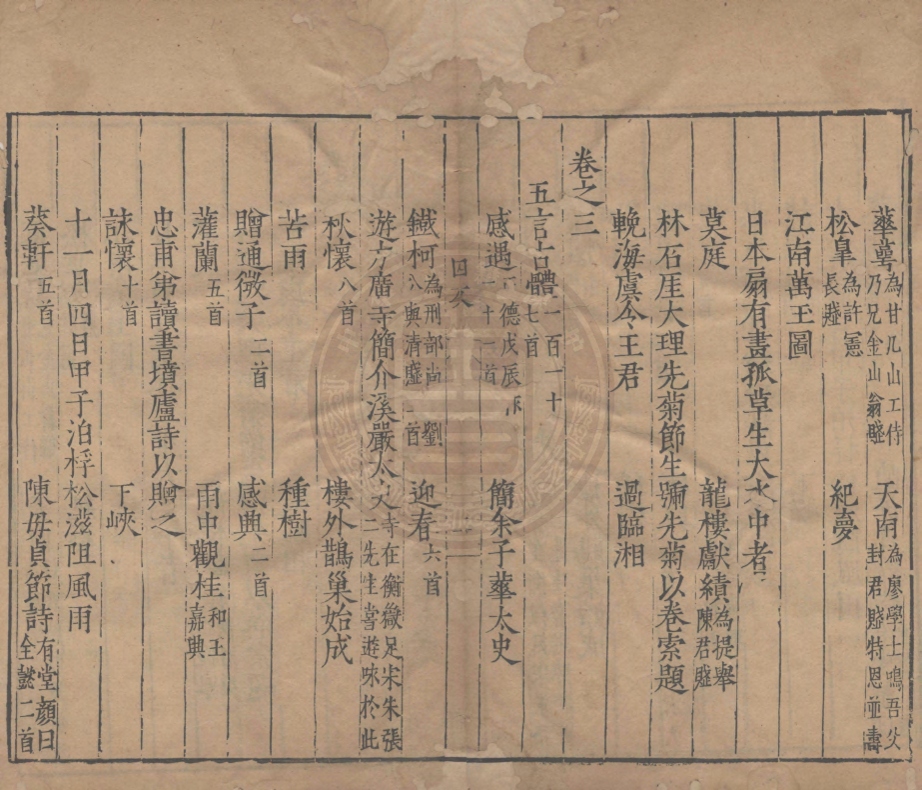 蕚蕚為甘几山工侍乃兄金山翁賦 天南為廖學士鳴吾父封君賦特恩並壽
松臯為許憲長賦 紀夢
江南萬玉圖
日本扇有畫孤草生大水中者
莫庭 龍樓獻績為提舉陳君賦
林石厓大理先菊節生號先菊以卷索題
輓海虞令王君 過臨湘
卷之三
五言古體一百一十七首
感遇德戊辰十一首 簡余子華太史
鐵柯為刑部尚劉八輿清賦首 迎春六首
遊方廣寺簡介溪嚴太史寺在衡嶽足宋朱張二先生嘗遊咏於此
秋懷八首 樓外鵲巢始成
苦雨 種樹
贈通微子二首 感興二首
灌蘭五首 雨中觀桂和王嘉興
忠甫弟讀書墳廬詩以贈之
詠懷十首 下峽
十一月四日甲子泊桴松滋阻風雨
葵軒五首 陳毋貞節詩有堂顏曰全懿二首